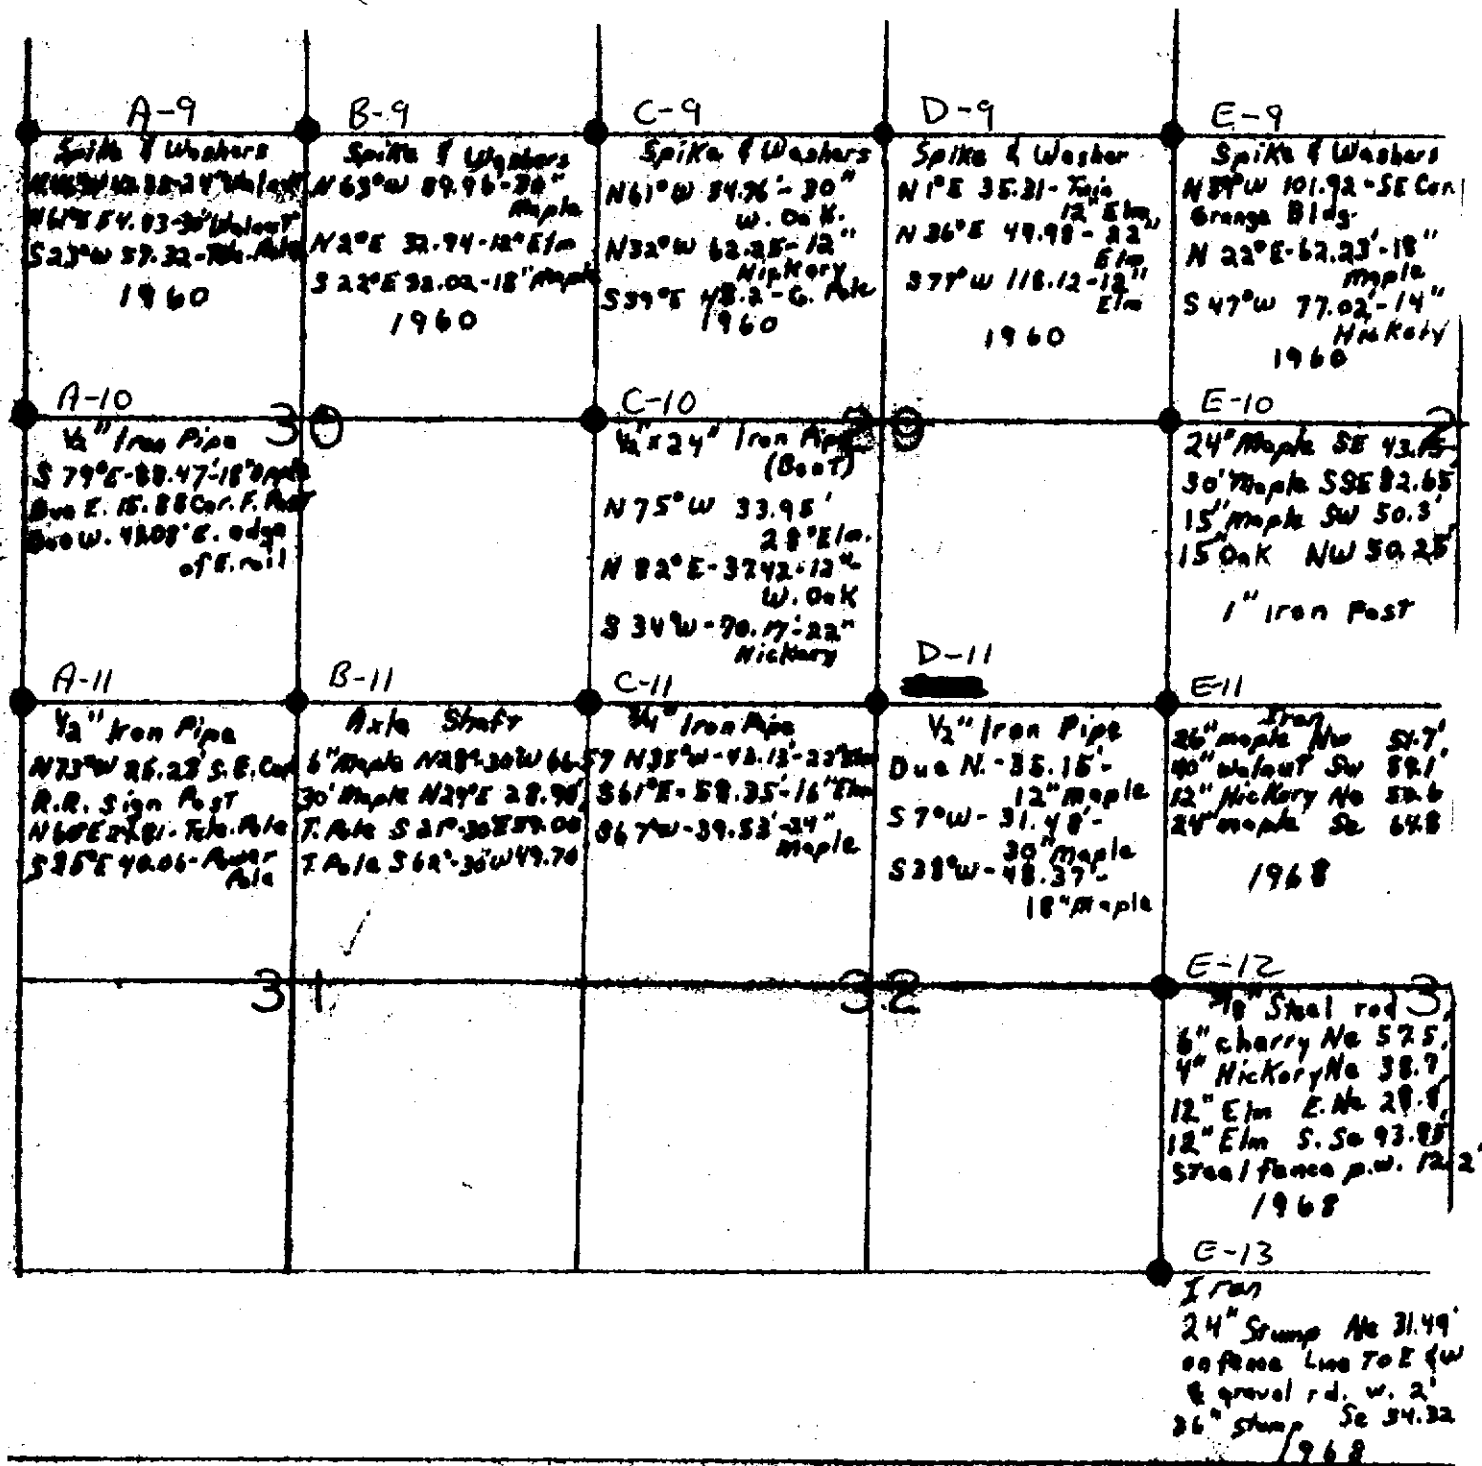 A-9
Spike & Washers
N61°E 54.93-30" Walnut
S23°W 57.32-Tele. Pole
1960
B-9
Spike & Washers
N63°W 89.96-30"
Maple
N2°E 32.94-12" Elm
S22°E 32.02-18" Maple
1960
C-9
Spike & Washers
N61°W 34.96'-30"
W. Oak.
N32°W 62.25-12"
Hickory
S39°E 48.2-G. Pole
1960
D-9
Spike & Washer
N1°E 35.31-Twin
12" Elm,
N36°E 49.98-22"
Elm
S77°W 118.12-12"
Elm
1960
E-9
Spike & Washers
N39°W 101.92-SE Cor.
Grange Bldg.
N 22°E-62.23'-18"
Maple
S 47°W 77.02'-14"
Hickory
1960
A-10
1/2" Iron Pipe
S 79°E-88.47'-18"
Due E. 15.88 Cor. F. Post
Due W. 42.08' E. edge
of E. rail
30
C-10
1/2" x 24" Iron Pipe
(Bent)
N75°W 33.95'
28" Elm.
N 82°E-37.42-12"
W. Oak
S 34°W-70.17'-22"
Hickory
29
E-10
24" Maple SE 43.15
30' Maple SSE 82.65
15" Maple SW 50.3'
15" Oak NW 50.25'
1" Iron Post
A-11
1/2" Iron Pipe
N73°W 26.28' S.E. Cor
R.R. Sign Post
N60°E 27.81-Tele. Pole
S85°E 40.06-Power
Pole
B-11
Axle Shaft
6" Maple N28°-30'W 66.57
30' Maple N29°E 28.90'
T. Pole S 21°-30'E 59.00
T. Pole S62°-30'W 49.70
C-11
3/4" Iron Pipe
N35°W-42.13'-23" Elm
S61°E-58.35'-16" Elm
S67°W-39.53'-24"
Maple
D-11
1/2" Iron Pipe
Due N.-35.15'-
12" Maple
S7°W-31.48'-
30" Maple
S38°W-48.37'-
18" Maple
E-11
Iron
26" maple Nw 51.7'
40" walnut Sw 59.1'
12" Hickory Ne 50.6
24" maple Se 64.8
1968
31
32
E-12
Steel rod
6" cherry Ne 57.5,
4" Hickory Ne 38.7,
12" Elm E. Ne 28.8,
12" Elm S. Se 93.85'
Steel fence p.w. 12.2'
1968
3
E-13
Iron
24" Stump Ne 31.49'
on fence Line To E & W
℄ gravel rd. w. 2'
36" Stump Se 34.32
1968